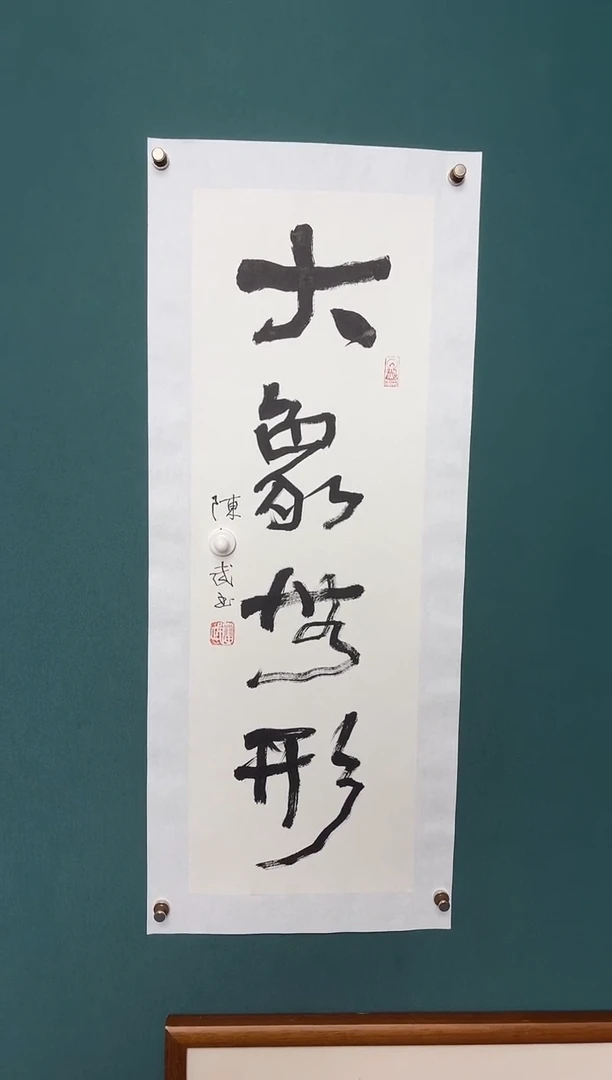 大象無形
陳 武书